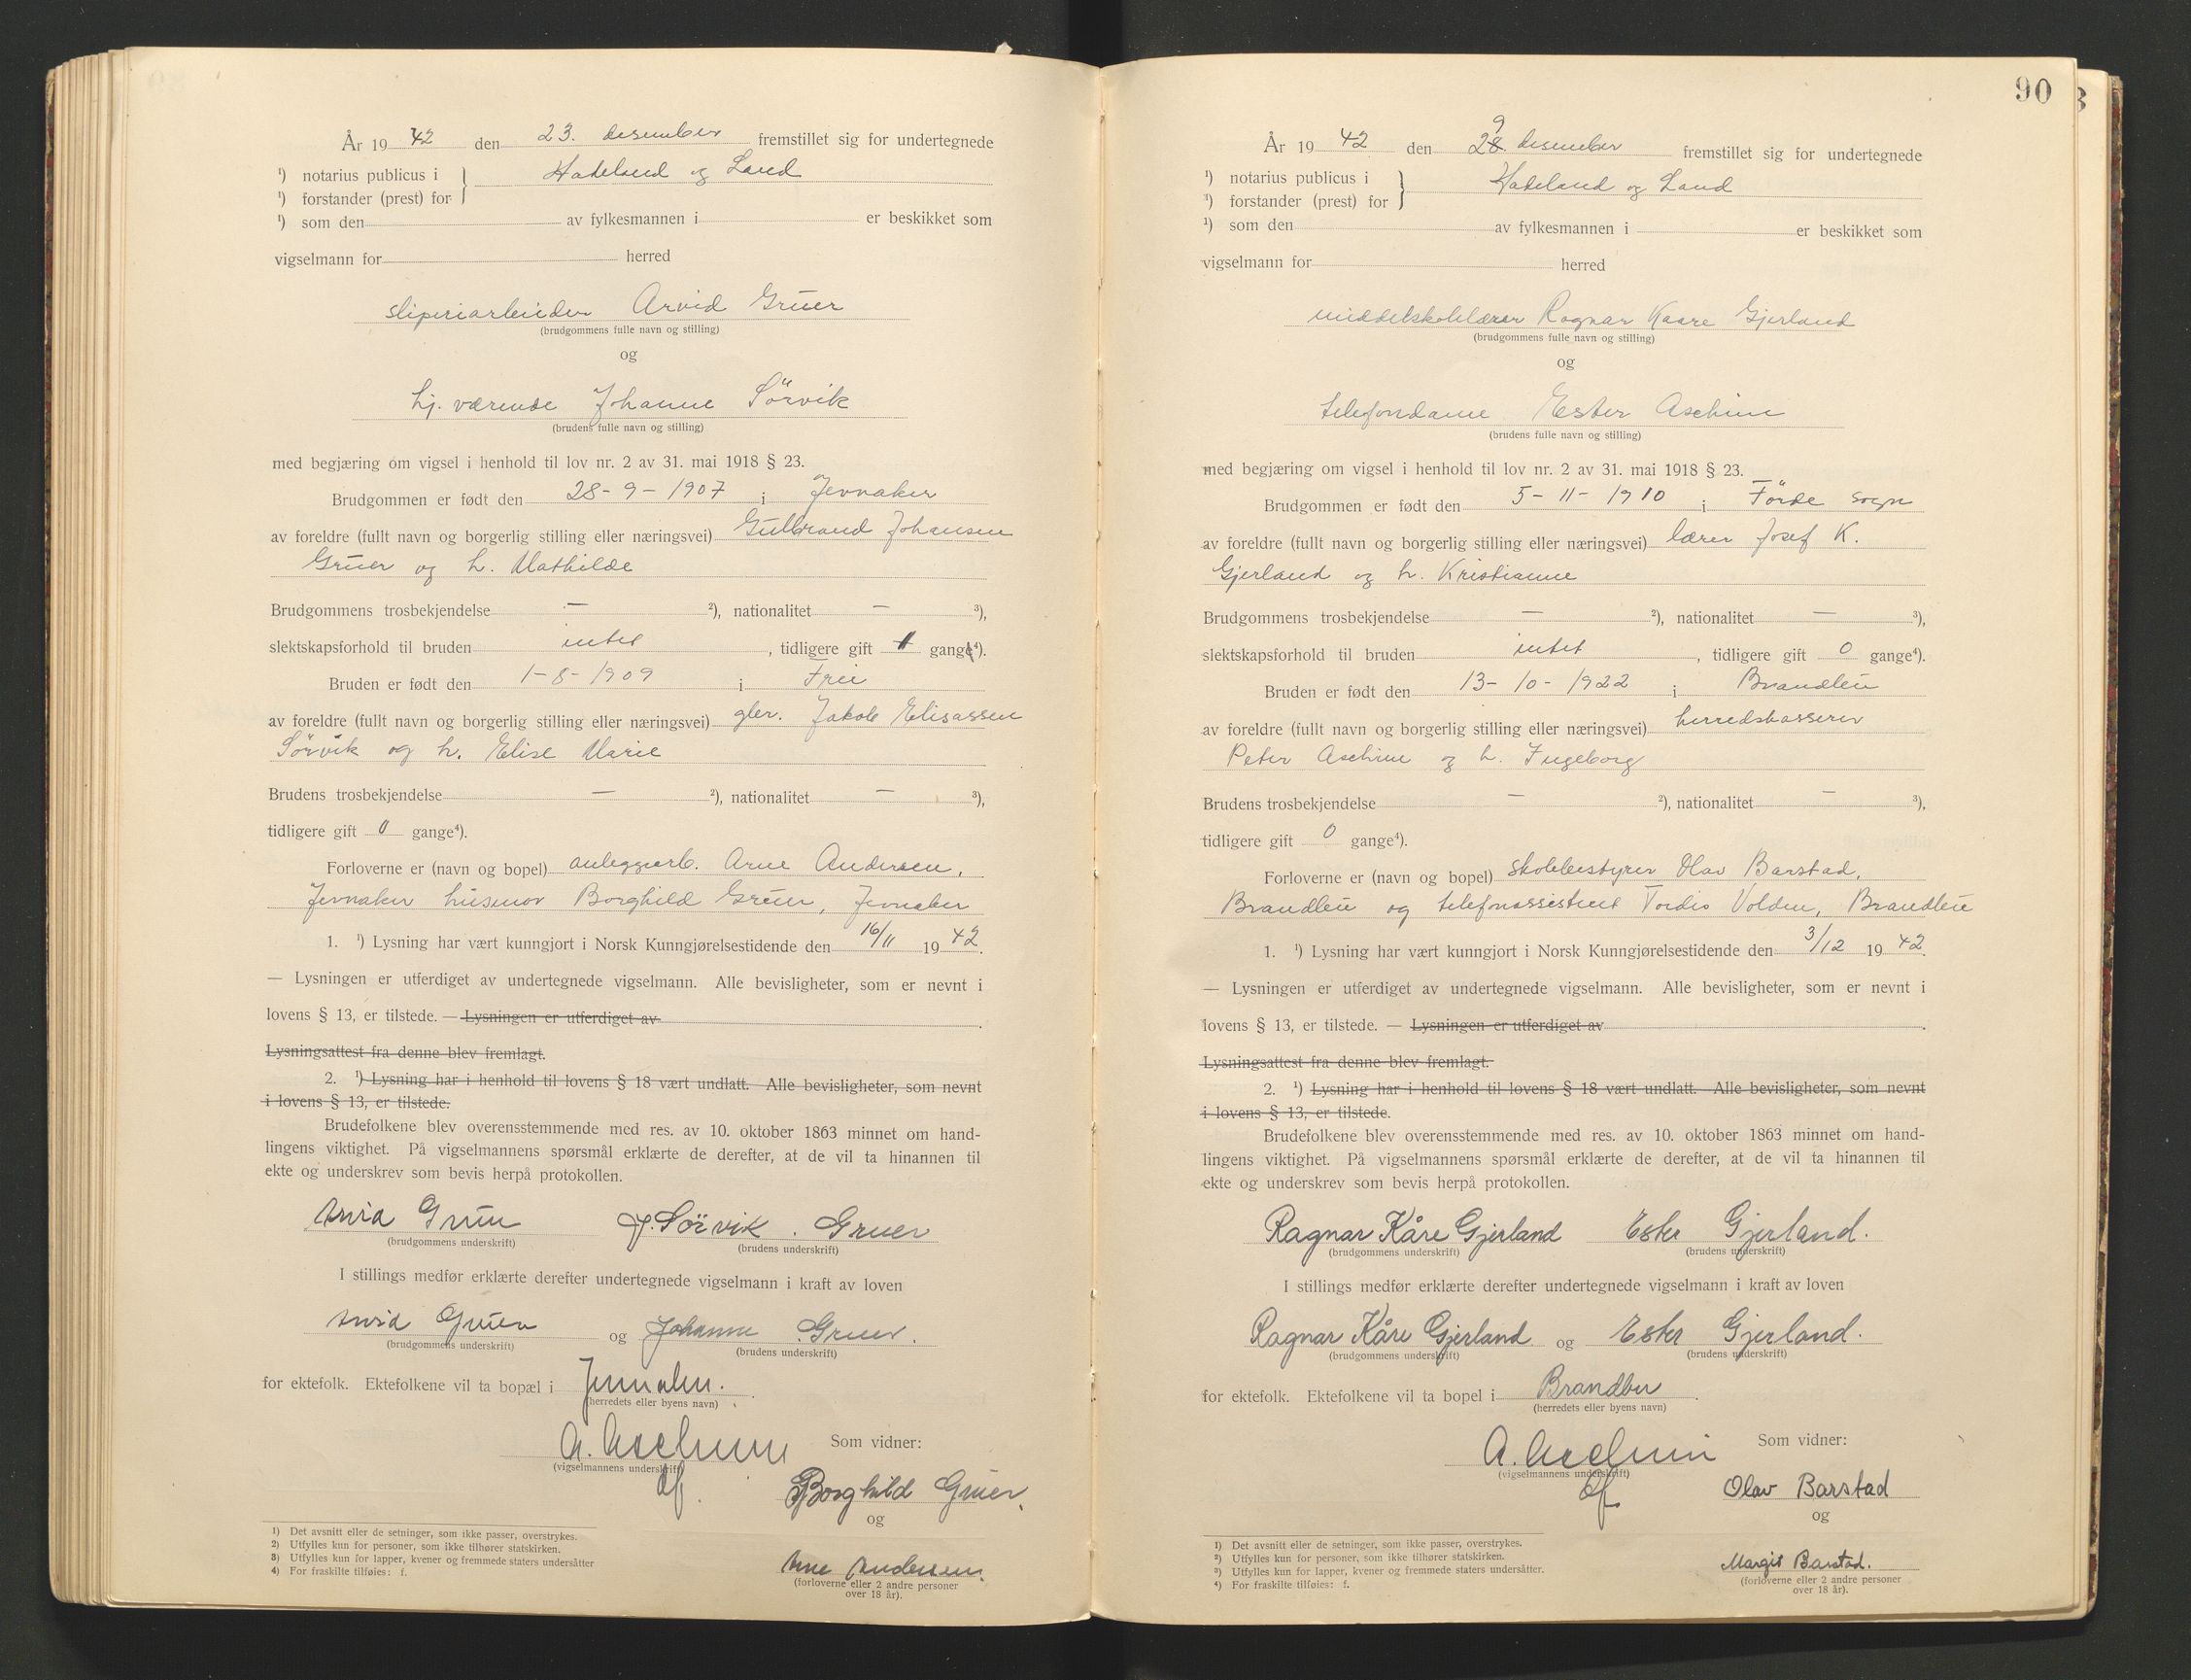 År 19 42 den 23. desember fremstillet sig for undertegnede
¹) notarius publicus i Hadeland og Land
¹) forstander (prest) for
¹) som den av fylkesmannen i er beskikket som
vigselmann for herred
sliperiarbeider Arvid Gruer
(brudgommens fulle navn og stilling)
og
hj. værende Johanne Sörvik
(brudens fulle navn og stilling)
med begjæring om vigsel i henhold til lov nr. 2 av 31. mai 1918 § 23.
Brudgommen er født den 28-9-1907 i Jevnaker
av foreldre (fullt navn og borgerlig stilling eller næringsvei) Gulbrand Johansen
Gruer og h. Mathilde
Brudgommens trosbekjendelse — ²), nationalitet — ³),
slektskapsforhold til bruden intet, tidligere gift 1 gang⁴).
Bruden er født den 1-8-1909 i Frei
av foreldre (fullt navn og borgerlig stilling eller næringsvei) gbr. Jakob Elisassen
Sörvik og h. Elise Marie
Brudens trosbekjendelse — ²), nationalitet — ³),
tidligere gift 0 gange⁴).
Forloverne er (navn og bopel) anleggsarb. Arne Andersen,
Jevnaker husmor Borghild Gruer, Jevnaker
1. ¹) Lysning har vært kunngjort i Norsk Kunngjørelsestidende den 16/11 1942.
— Lysningen er utferdiget av undertegnede vigselmann. Alle bevisligheter, som er nevnt i
lovens § 13, er tilstede. — Lysningen er utferdiget av
Lysningsattest fra denne blev fremlagt.
2. ¹) Lysning har i henhold til lovens § 18 vært undlatt. Alle bevisligheter, som nevnt
i lovens § 13, er tilstede.
Brudefolkene blev overensstemmende med res. av 10. oktober 1863 minnet om hand-
lingens viktighet. På vigselmannens spørsmål erklærte de derefter, at de vil ta hinannen til
ekte og underskrev som bevis herpå protokollen.
Arvid Gruer J. Sörvik. Gruer
(brudgommens underskrift) (brudens underskrift)
I stillings medfør erklærte derefter undertegnede vigselmann i kraft av loven
Arvid Gruer og Johanne Gruer.
(brudgommens underskrift) (brudens underskrift)
for ektefolk. Ektefolkene vil ta bopæl i Jevnaker.
(herredets eller byens navn)
A. Aschim Som vidner:
(vigselmannens underskrift)
Borghild Gruer.
og
Arne Andersen.
(forloverne eller 2 andre personer
over 18 år).
1) Det avsnitt eller de setninger, som ikke passer, overstrykes.
2) Utfylles kun for personer, som ikke tilhører statskirken.
3) Utfylles kun for lapper, kvener og fremmede staters undersåtter
4) For fraskilte tilføies: f.
90
År 19 42 den 29. desember fremstillet sig for undertegnede
¹) notarius publicus i Hadeland og Land
¹) forstander (prest) for
¹) som den av fylkesmannen i er beskikket som
vigselmann for herred
middelskolelærer Ragnar Kaare Gjerland
(brudgommens fulle navn og stilling)
og
telefondame Ester Aschim
(brudens fulle navn og stilling)
med begjæring om vigsel i henhold til lov nr. 2 av 31. mai 1918 § 23.
Brudgommen er født den 5-11-1910 i Förde sogn
av foreldre (fullt navn og borgerlig stilling eller næringsvei) lærer Josef K.
Gjerland og h. Kristianne
Brudgommens trosbekjendelse — ²), nationalitet — ³),
slektskapsforhold til bruden intet, tidligere gift 0 gange⁴).
Bruden er født den 13-10-1922 i Brandbu
av foreldre (fullt navn og borgerlig stilling eller næringsvei) herredskasserer
Peter Aschim og h. Ingeborg
Brudens trosbekjendelse — ²), nationalitet — ³),
tidligere gift 0 gange⁴).
Forloverne er (navn og bopel) skolebestyrer Olav Barstad,
Brandbu og telefonassistent Tordis Volden, Brandbu
1. ¹) Lysning har vært kunngjort i Norsk Kunngjørelsestidende den 3/12 1942.
— Lysningen er utferdiget av undertegnede vigselmann. Alle bevisligheter, som er nevnt i
lovens § 13, er tilstede. — Lysningen er utferdiget av
Lysningsattest fra denne blev fremlagt.
2. ¹) Lysning har i henhold til lovens § 18 vært undlatt. Alle bevisligheter, som nevnt
i lovens § 13, er tilstede.
Brudefolkene blev overensstemmende med res. av 10. oktober 1863 minnet om hand-
lingens viktighet. På vigselmannens spørsmål erklærte de derefter, at de vil ta hinannen til
ekte og underskrev som bevis herpå protokollen.
Ragnar Kåre Gjerland Ester Gjerland.
(brudgommens underskrift) (brudens underskrift)
I stillings medfør erklærte derefter undertegnede vigselmann i kraft av loven
Ragnar Kåre Gjerland og Ester Gjerland.
(brudgommens underskrift) (brudens underskrift)
for ektefolk. Ektefolkene vil ta bopel i Brandbu.
(herredets eller byens navn)
A. Aschim Som vidner:
(vigselmannens underskrift)
Olav Barstad
og
Margit Barstad.
(forloverne eller 2 andre personer
over 18 år).
1) Det avsnitt eller de setninger, som ikke passer, overstrykes.
²) Utfylles kun for personer, som ikke tilhører statskirken.
³) Utfylles kun for lapper, kvener og fremmede staters undersåtter.
⁴) For fraskilte tilføies: f.